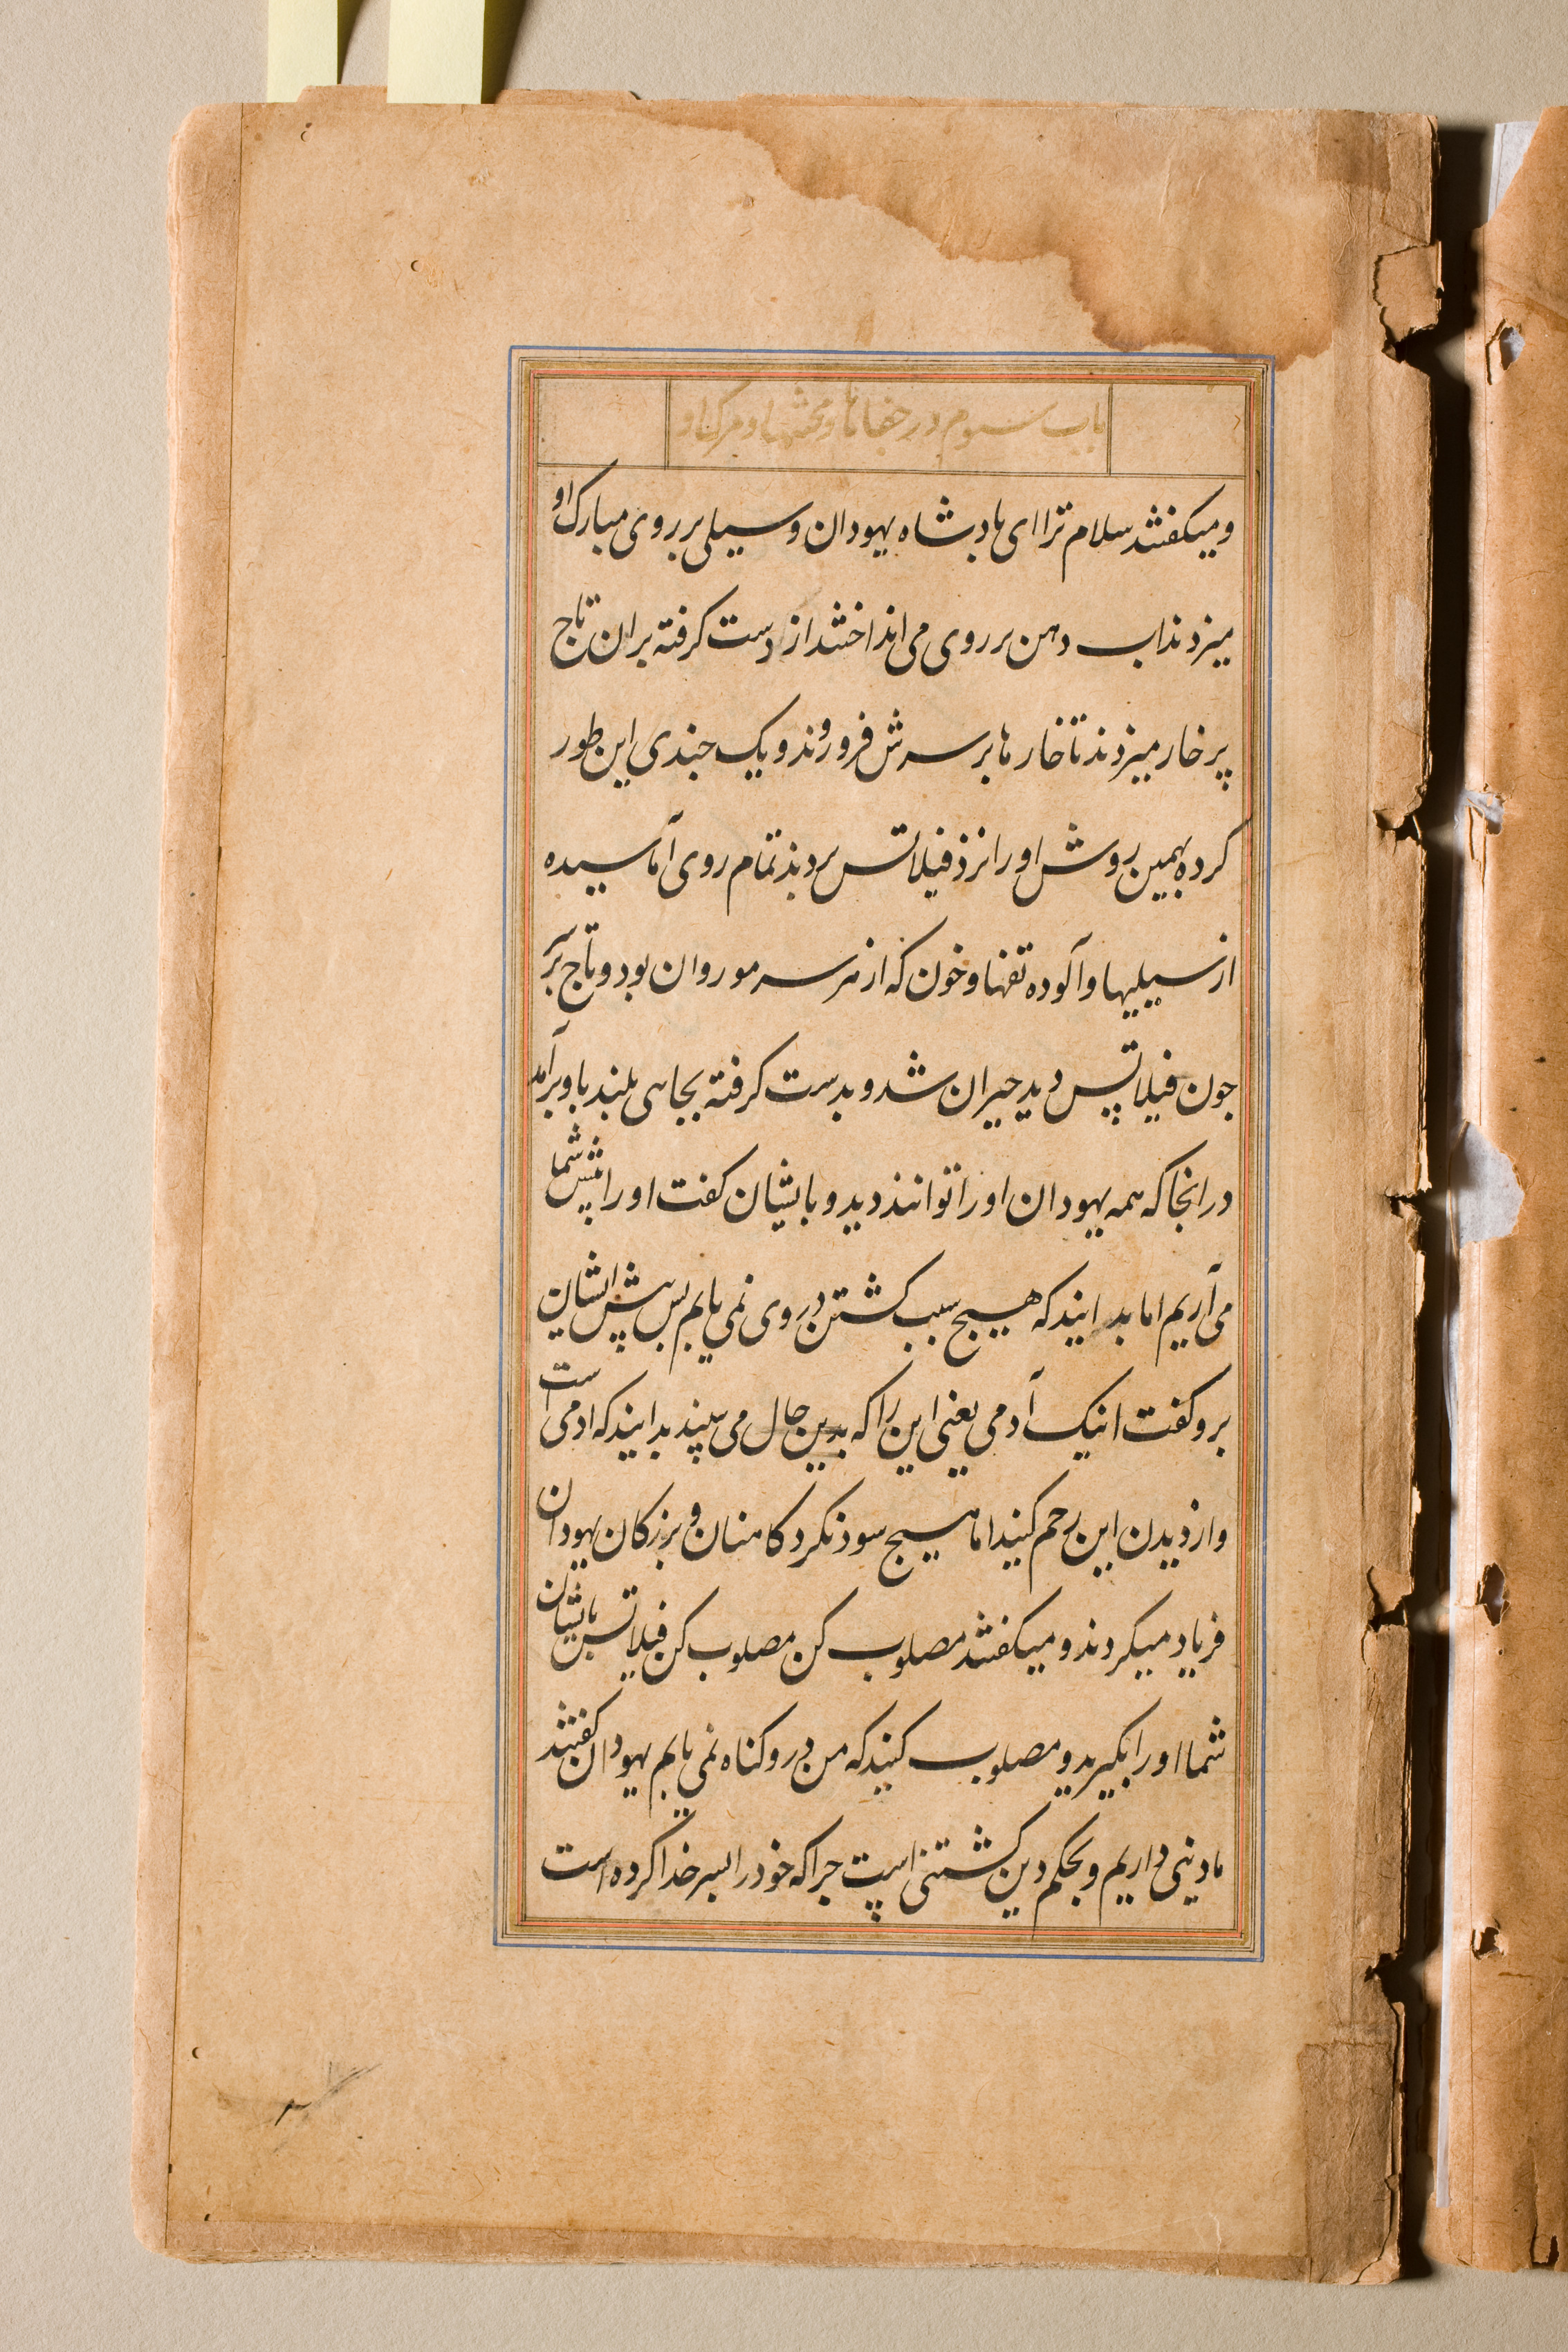 باب سوم در جفاها و محنتها و مرگ او
و میکفتند سلام ترا ای پادشاه یهودان و سیلی بر روی مبارک او
میزدند اب دهن بر روی می انداختند از دست کرفته بران تاج
پر خار میزدند تا خارها بر سرش فرو روند و یک چندی این طور
کرده بهمین روش او را نزد فیلاتس بردند تمام روی آماسیده
از سیلیها و آلوده تفها و خون که از هر سر مو روان بود و تاج بر سر
چون فیلاتس دید حیران شد و بدست کرفته بجاهی بلند با او برآمد
در انجا که همه یهودان او را توانند دید و بایشان کفت او را پیش شما
می آریم اما بدانید که هیچ سبب کشتن در وی نمی یابم پس پیش ایشان
برو کفت اینک آدمی یعنی این را که بدین حال می بینید بدانید که ادمی است
و از دیدن این رحم کنید اما هیچ سود نکرد کاهنان و بزرکان یهودان
فریاد میکردند و میکفتند مصلوب کن مصلوب کن فیلاتس بایشان
شما او را بکیرید و مصلوب کنید که من در و کناه نمی یابم یهودان کفتند
ما دینی داریم و بحکم دین کشتنی است چرا که خود را پسر خدا کرده است